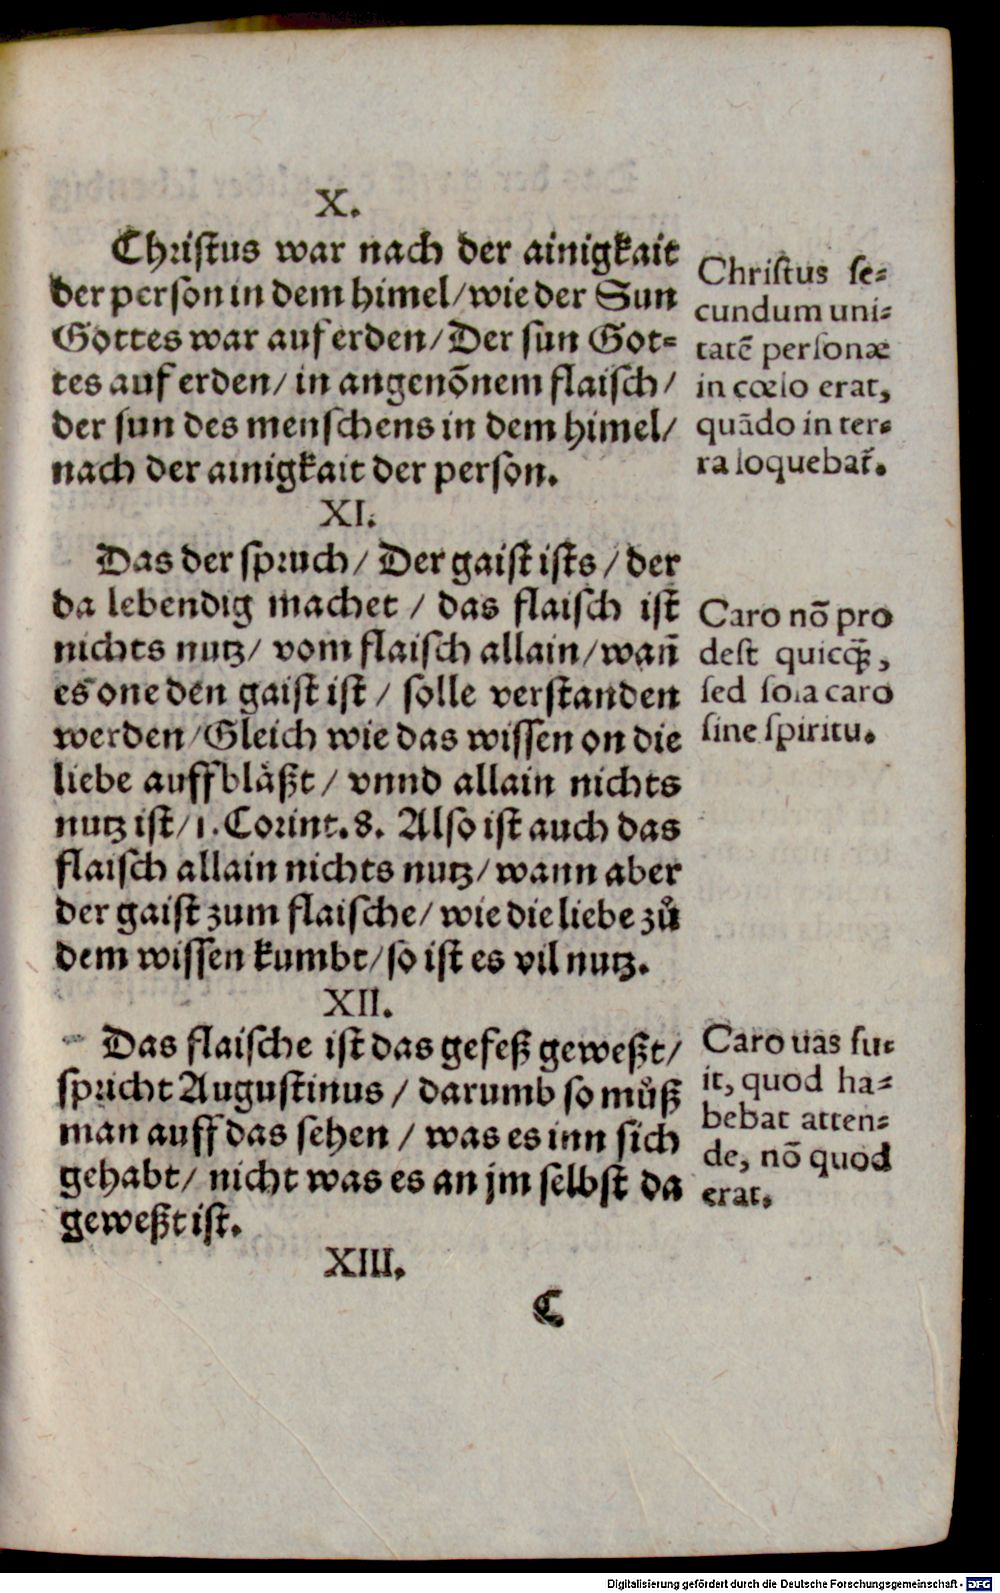 X.
Christus war nach der ainigkait
der person in dem himel/ wie der Sun
Gottes war auf erden/ Der sun Got⸗
tes auf erden/ in angenōnem flaisch/
der sun des menschens in dem himel/
nach der ainigkait der person.
Christus se⸗
cundum uni⸗
tatē personæ
in cœlo erat,
quādo in ter⸗
ra loquebat̃.
XI.
Das der spruch/ Der gaist ists/ der
da lebendig machet/ das flaisch ist
nichts nutz/ vom flaisch allain/ wañ
es one den gaist ist/ solle verstanden
werden/ Gleich wie das wissen on die
liebe auffblåßt/ vnnd allain nichts
nutz ist/ 1. Corint. 8. Also ist auch das
flaisch allain nichts nutz/ wann aber
der gaist zum flaische/ wie die liebe zů
dem wissen kumbt/ so ist es vil nutz.
Caro nō pro
dest quicq̃,
sed sola caro
sine spiritu.
XII.
Das flaische ist das gefeß geweßt/
spricht Augustinus/ darumb so můß
man auff das sehen/ was es inn sich
gehabt/ nicht was es an jm selbst da
geweßt ist.
Caro uas fue
it, quod ha⸗
bebat atten⸗
de, nō quod
erat.
XIII.
C
Digitalisierung gefördert durch die Deutsche Forschungsgemeinschaft - DFG